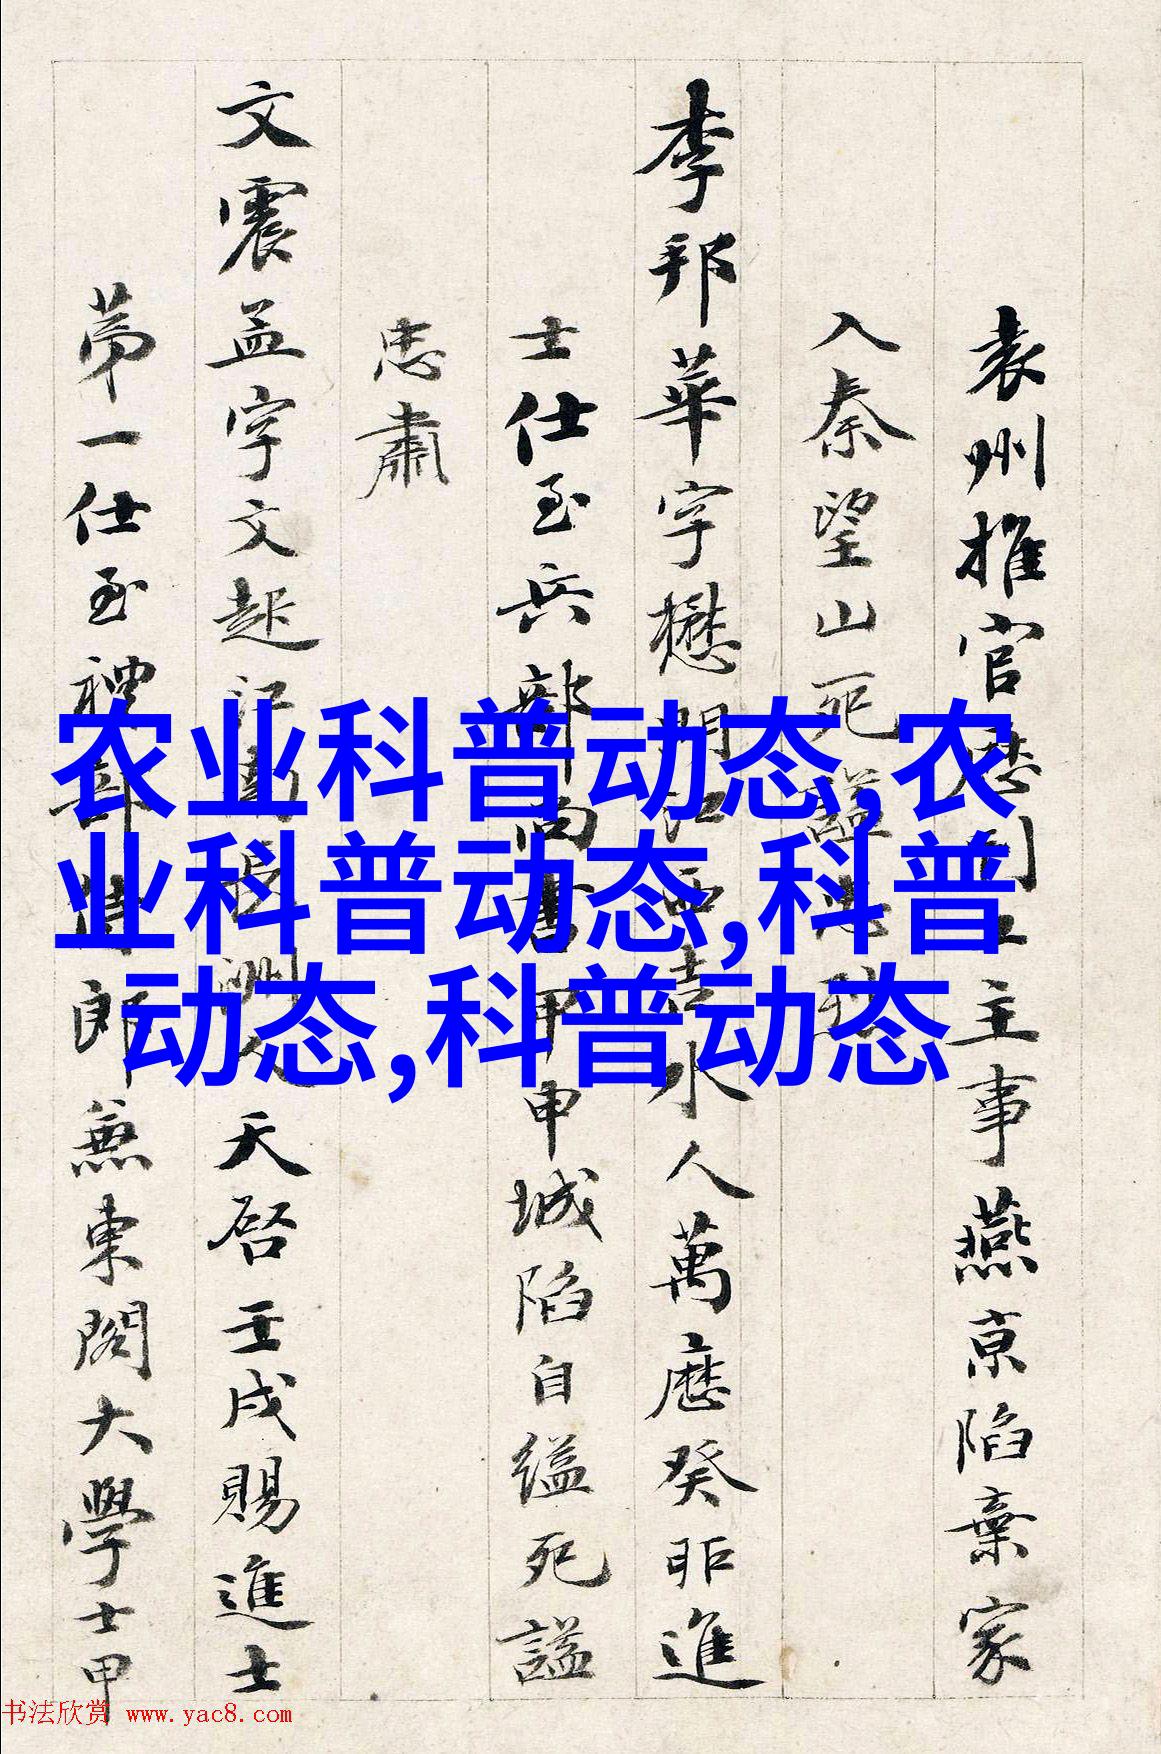 袁州推官 主事燕京陷棄家
入秦望山死謚
李邦華字懋明江西吉水人萬曆癸卯進
士仕至兵部尚書甲申城陷自縊死謚
忠肅
文震孟字文起 天啓壬戌賜進士
第一仕至禮部 郎兼東閣大學士甲
农业科普动态,农
业科普动态,科普
动态,科普动态
书法欣赏 www.yac8.com